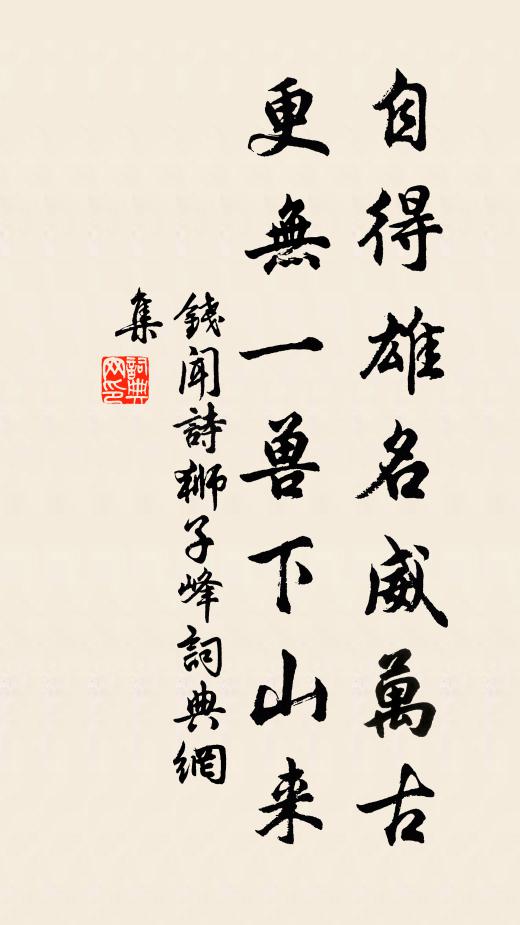 自得雄名威萬古
更無一兽下山来
錢聞詩狮子峰詞典網
集
詞典网印